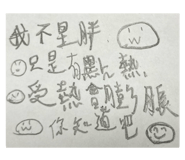 我不是胖
只是有點熱
受熱會膨脹
你知道吧